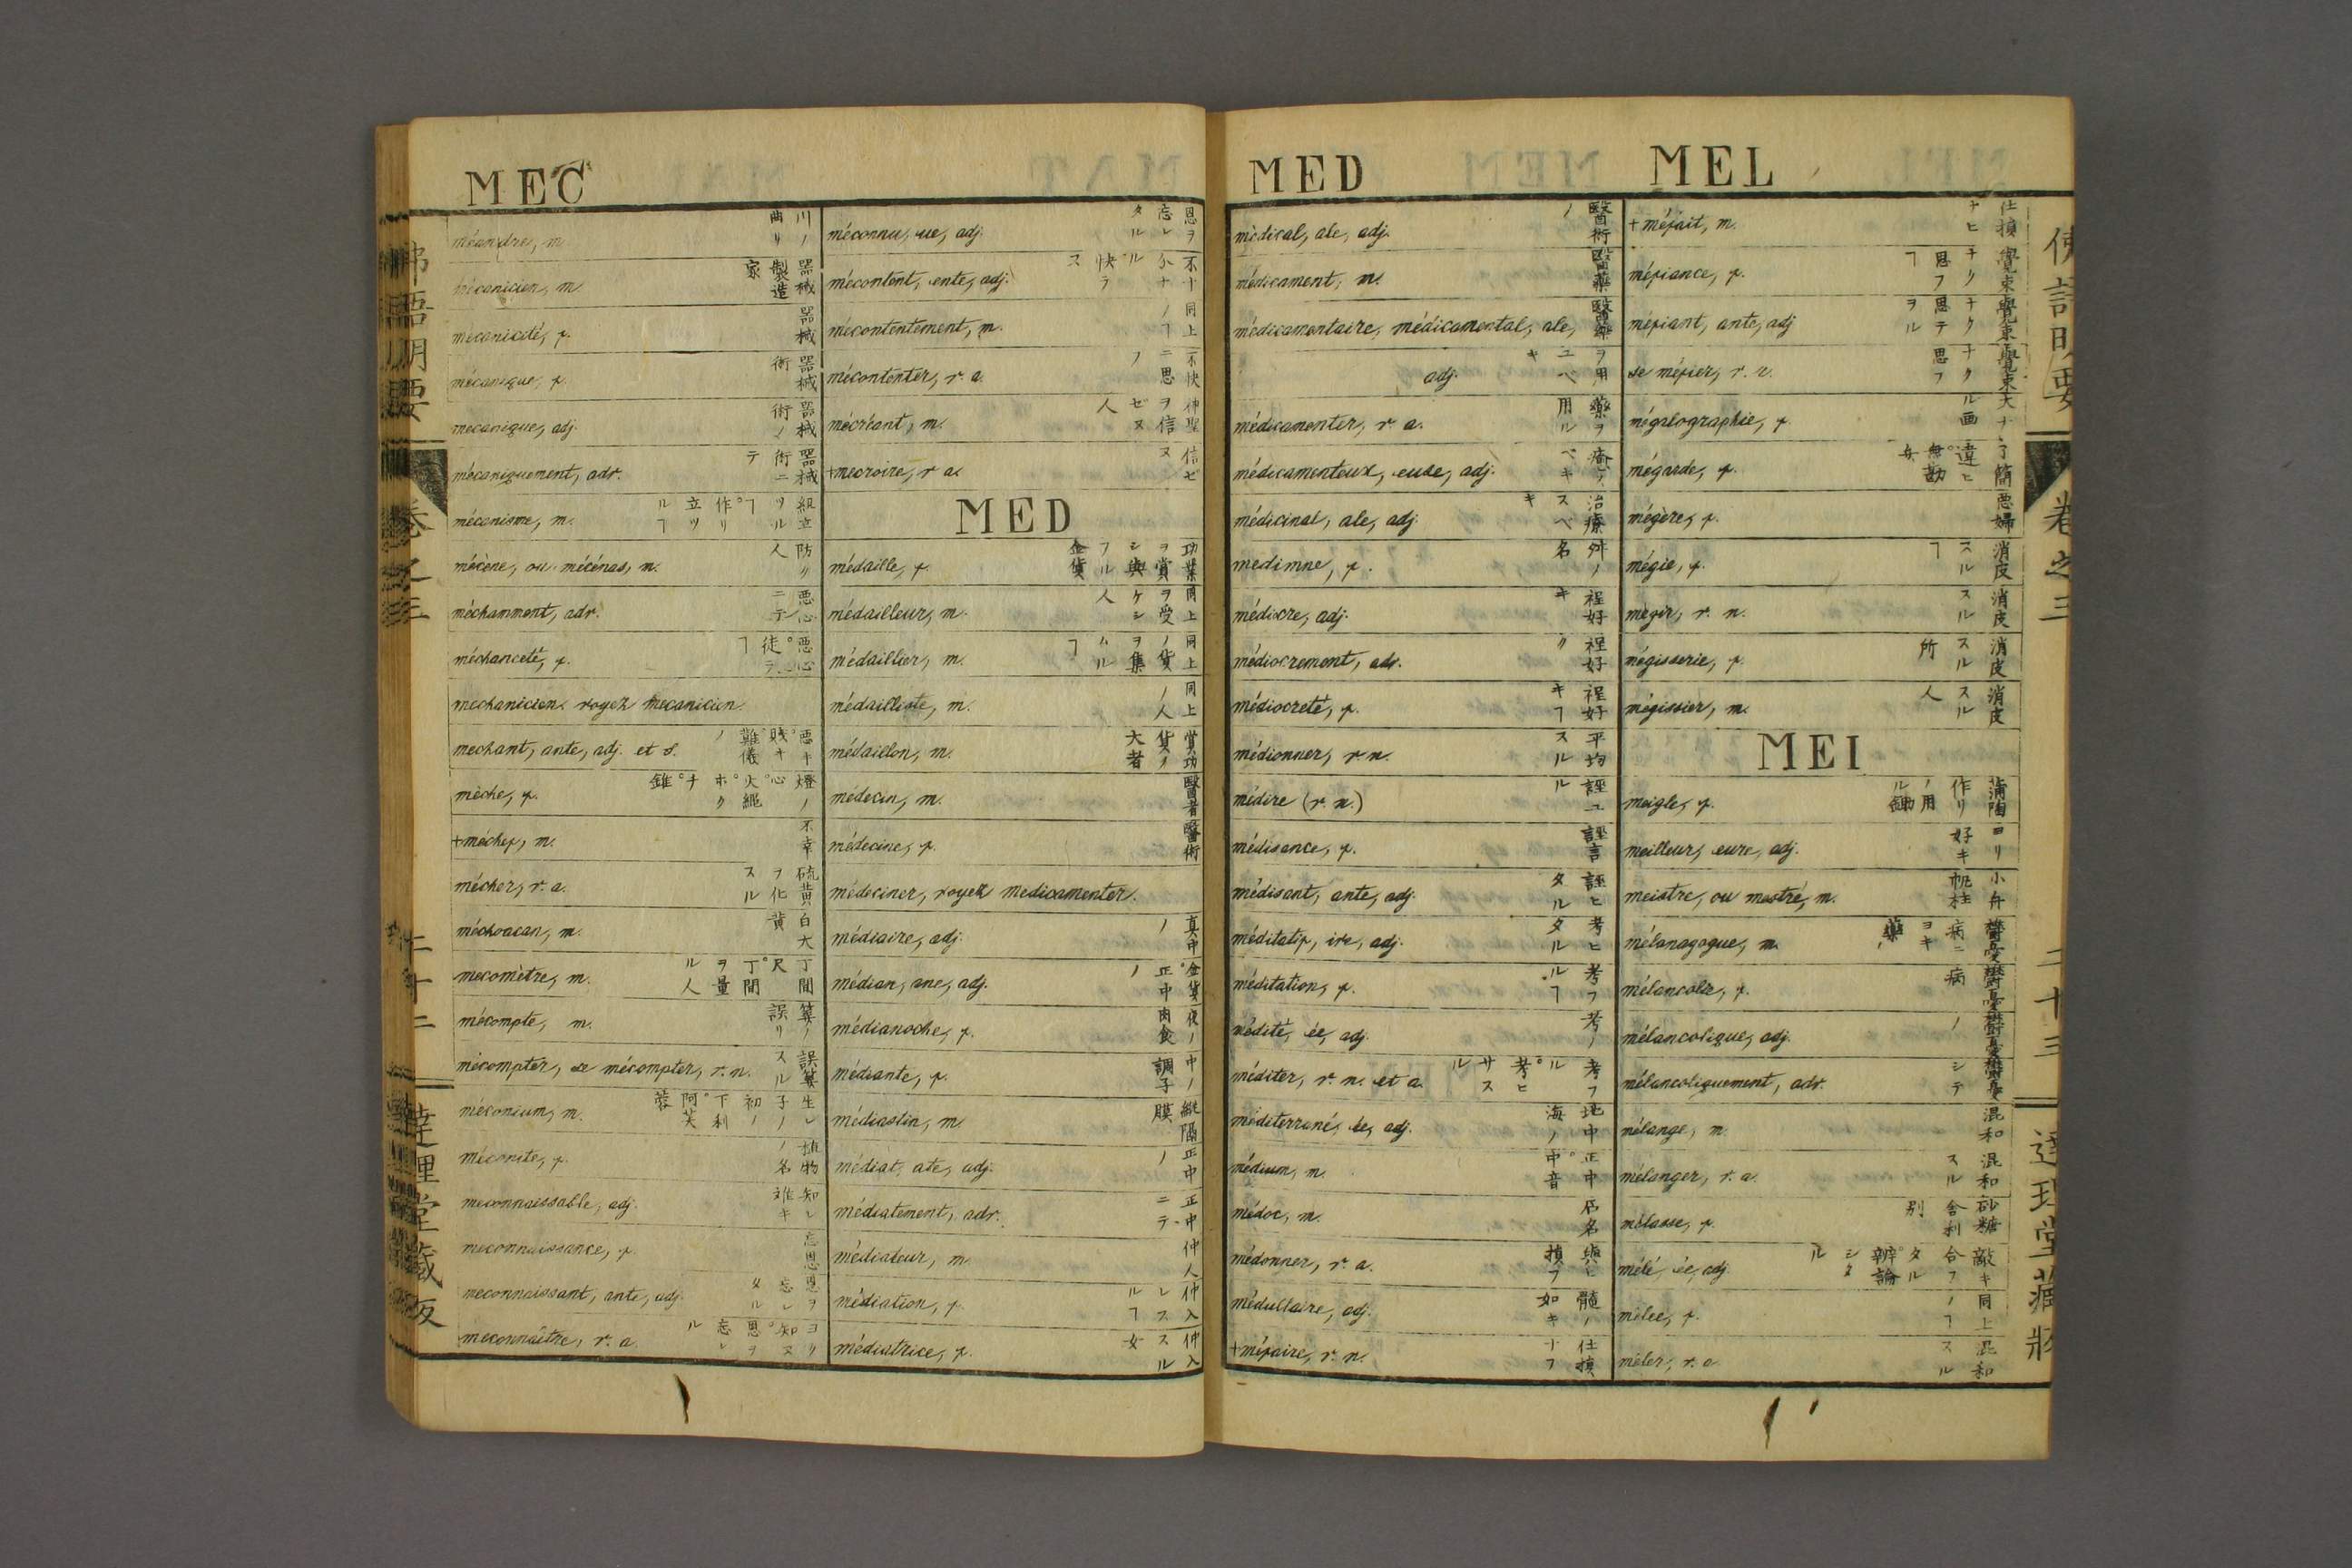 MEC
méandre, m. 川ノ曲リ
mécanicien, m. 器械製造家
mécanicité, f. 器械
mécanique, f. 器械術
mécanique, adj. 器械術ノ
mécaniquement, adv. 器械術ニテ
mécanisme, m. 組立ツルヿ。作リ立ツルヿ
mécène, ou mécénas, m. 防人
méchamment, adv. 悪心ニテ
méchanceté, f. 悪心。徒ラヿ
mechanicien. voyez mecanicien.
mechant, ante, adj. et s. 悪キ。賎キ。難儀ノ
mèche, f. 燈心。火縄。ホクチ。錐
+méchef, m. 不幸
mécher, v. a. 硫黄ヲ化スル
méchoacan, m. 白大黄
mecomètre, m. 丁間尺。丁間ヲ量ル人
mécompte, m. 算ノ誤リ
mécompter, se mécompter, v. n. 誤算スル
méconium, m. 生レ子ノ初ノ下利。阿芙蓉
méconite, f. 植物ノ名
meconnaissable, adj. 知レ難キ
meconnaissance, f. 忘恩
meconnaissant, ante, adj. 恩ヲ忘レタル
meconnaître, v. a. 知ヌ。恩ヲ忘レル
méconnu, ue, adj. 恩ヲ忘レタル
mécontent, ente, adj.
mécontentement, m. 同上ノヿ
mécontenter, v. a. 不快ニ思
mécréant, m. 神聖ヲ信ゼヌ人
+mecroire, v. a. 信ゼヌ
MED
médaille, f. 功業ヲ賞シ與フル金貨
médailleur, m. 同上ヲ受ケシ人
médaillier, m. 同上ノ貨ヲ集ムルヿ
médailliste, m. 同上ノ人
médaillon, m. 賞功貨ノ大者
médecin, m. 醫者
médecine, f. 醫術
médeciner, voyez medicamenter.
médiaire, adj. 真中ノ
médian, ane, adj. 正中ノ
médianoche, f. 夜ノ肉食
médiante, f. 中ノ調子
médiastin, m. 縦隔膜
médiat, ate, adj. 正中ノ
médiatement, adv. 正中ニテ
médiateur, m. 仲人
médiation, f. 仲入レスルヿ
médiatrice, f. 仲入スル女
MED
médical, ale, adj. 醫術ノ
médicament, m. 醫藥
médicamentaire, médicamental, ale, adj. 醫藥ヲ用ユベキ
médicamenter, v. a. 藥ヲ用ル
médicamenteux, euse, adj.
médicinal, ale, adj. 治療スベキ
medimne, f. 舛ノ名
médiocre, adj. 程好キ
médiocrement, adv. 程好ク
médiocreté, f. 程好キヿ
médionner, v. n. 平均スル
médire (v. n.)
médisance, f. 誣言
médisant, ante, adj.
méditatif, ive, adj. 考ヒタル
méditation, f. 考フルヿ
médité, ée, adj. 考ノ
méditer, v. n. et a. 考フル。考ヒサスル
méditerrané, ée, adj. 地中海ノ
médium, m. 正中。中音
médoc, m. 石名
médonner, v. a. 與ヒ損フ
médullaire, adj. 髄ノ如キ
+méfaire, v. n. 仕損ナフ
MEL
+méfait, m. 仕損ナヒ
méfiance, f. 覺束ナク思フヿ
méfiant, ante, adj 覺束ナク思テヲル
se méfier, v. r. 覺束ナク思フ
mégalographie, f. 大ナル画
mégarde, f. 了簡違ヒ。無勘弁
mégère, f. 悪婦
mégie, f. 消皮スルヿ
megir, v. n. 消皮スル
mégisserie, f. 消皮スル所
mégissier, m. 消皮スル人
MEI
meigle, f. 蒲陶作リノ用ル鋤
meilleur, eure, adj. ヨリ好キ
meistre, ou mestre, m. 小舟帆柱
mélanagogue, m. 鬱憂病ニヨキ藥
mélancolie, f. 鬱憂病
mélancolique, adj. 鬱憂ノ
mélancoliquement, adv. 鬱憂シテ
mélange, m. 混和
mélanger, v. a. 混和スル
mélasse, f. 砂糖舎利別
mêlé, ée, adj.
mêlée, f. 同上ノヿ
mêler, v. a. 混和スル
佛語明要
卷之三
二十二
達理堂藏版
卷之三
二十三
達理堂藏版